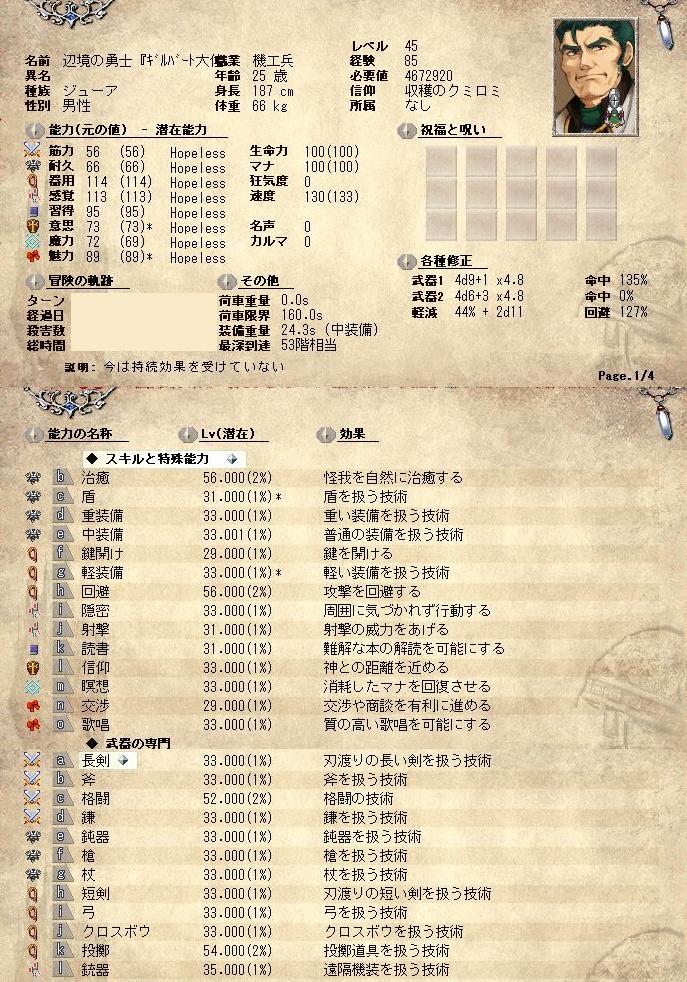 名前 辺境の勇士『ギルバート大佐 職業 機工兵 レベル 45
異名 年齢 25 歳 経験 85
種族 ジューア 身長 187 cm 必要値 4672920
性別 男性 体重 66 kg 信仰 収穫のクミロミ
所属 なし
能力(元の値) - 潜在能力 祝福と呪い
筋力 56 (56) Hopeless 生命力 100(100)
耐久 66 (66) Hopeless マナ 100(100)
器用 114 (114) Hopeless 狂気度 0
感覚 113 (113) Hopeless 速度 130(133)
習得 95 (95) Hopeless
意思 73 (73)* Hopeless 名声 0
魔力 72 (69) Hopeless カルマ 0
魅力 89 (89)* Hopeless
各種修正
冒険の軌跡 その他 武器1 4d9+1 x4.8 命中 135%
ターン 荷車重量 0.0s 武器2 4d6+3 x4.8 命中 0%
経過日 荷車限界 160.0s 軽減 44% + 2d11 回避 127%
殺害数 装備重量 24.3s (中装備)
総時間 最深到達 53階相当
説明: 今は持続効果を受けていない
Page.1/4
能力の名称 Lv(潜在) 効果
◆ スキルと特殊能力 ◆
b 治癒 56.000(2%) 怪我を自然に治癒する
c 盾 31.000(1%)* 盾を扱う技術
d 重装備 33.000(1%) 重い装備を扱う技術
e 中装備 33.001(1%) 普通の装備を扱う技術
f 鍵開け 29.000(1%) 鍵を開ける
g 軽装備 33.000(1%)* 軽い装備を扱う技術
h 回避 56.000(2%) 攻撃を回避する
i 隠密 33.000(1%) 周囲に気づかれず行動する
j 射撃 31.000(1%) 射撃の威力をあげる
k 読書 31.000(1%) 難解な本の解読を可能にする
l 信仰 33.000(1%) 神との距離を近める
m 瞑想 33.000(1%) 消耗したマナを回復させる
n 交渉 29.000(1%) 交渉や商談を有利に進める
o 歌唱 33.000(1%) 質の高い歌唱を可能にする
◆ 武器の専門
a 長剣 ◆ 33.000(1%) 刃渡りの長い剣を扱う技術
b 斧 33.000(1%) 斧を扱う技術
c 格闘 52.000(2%) 格闘の技術
d 鎌 33.000(1%) 鎌を扱う技術
e 鈍器 33.000(1%) 鈍器を扱う技術
f 槍 33.000(1%) 槍を扱う技術
g 杖 33.000(1%) 杖を扱う技術
h 短剣 33.000(1%) 刃渡りの短い剣を扱う技術
i 弓 33.000(1%) 弓を扱う技術
j クロスボウ 33.000(1%) クロスボウを扱う技術
k 投擲 54.000(2%) 投擲道具を扱う技術
l 銃器 35.000(1%) 遠隔機装を扱う技術